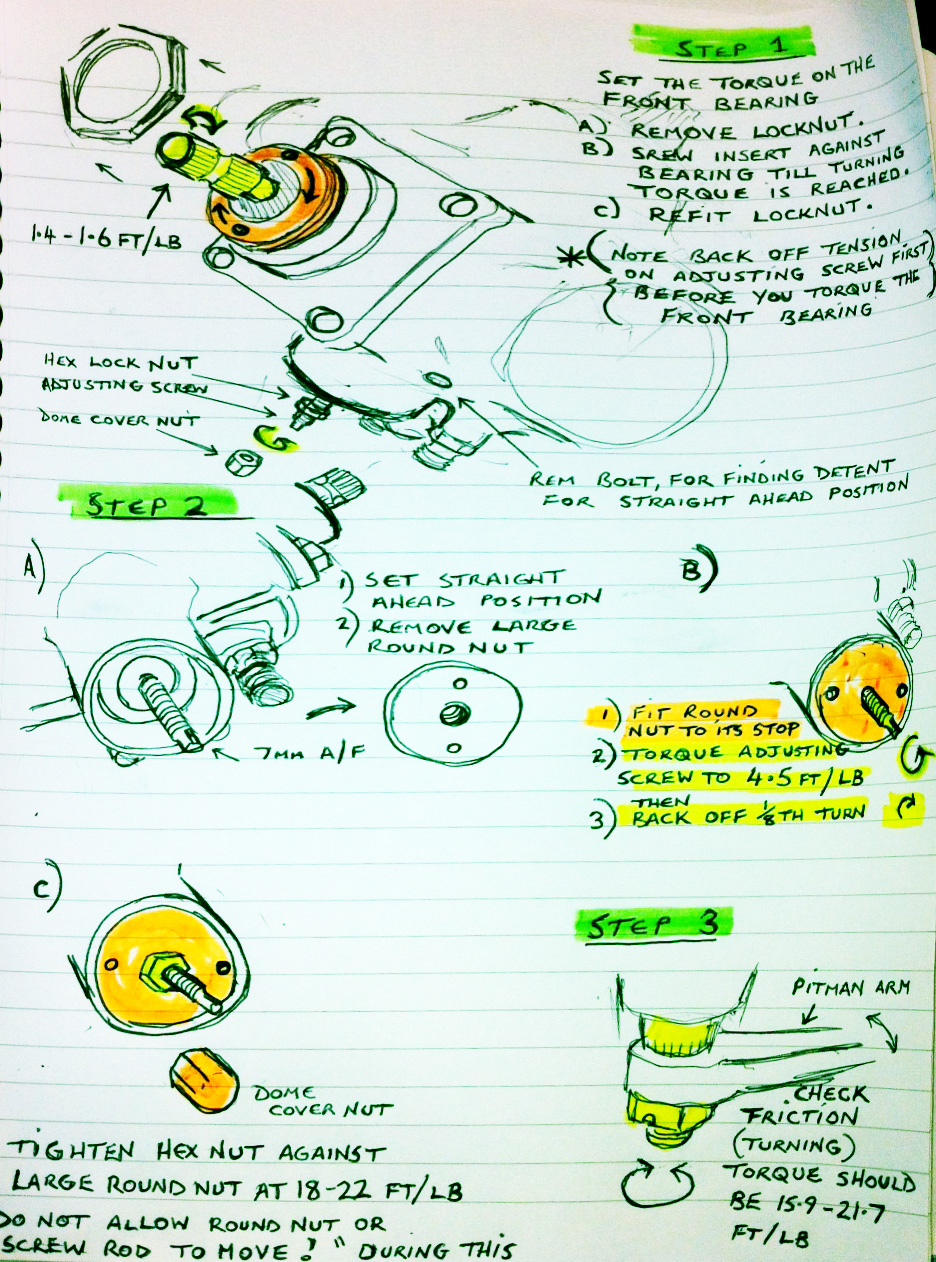 STEP 1
SET THE TORQUE ON THE
FRONT BEARING
A) REMOVE LOCKNUT.
B) SREW INSERT AGAINST
BEARING TILL TURNING
TORQUE IS REACHED.
C) REFIT LOCKNUT.
* (NOTE BACK OFF TENSION
ON ADJUSTING SCREW FIRST
BEFORE YOU TORQUE THE
FRONT BEARING)
1.4-1.6 FT/LB
HEX LOCK NUT
ADJUSTING SCREW
DOME COVER NUT
REM BOLT, FOR FINDING DETENT
FOR STRAIGHT AHEAD POSITION
STEP 2
A)
1) SET STRAIGHT
AHEAD POSITION
2) REMOVE LARGE
ROUND NUT
7MM A/F
B)
1) FIT ROUND
NUT TO ITS STOP
2) TORQUE ADJUSTING
SCREW TO 4.5 FT/LB
THEN
3) BACK OFF 1/8TH TURN
C)
DOME
COVER NUT
TIGHTEN HEX NUT AGAINST
LARGE ROUND NUT AT 18-22 FT/LB
DO NOT ALLOW ROUND NUT OR
SCREW ROD TO MOVE! " DURING THIS
STEP 3
PITMAN ARM
CHECK
FRICTION
(TURNING)
TORQUE SHOULD
BE 15.9-21.7
FT/LB